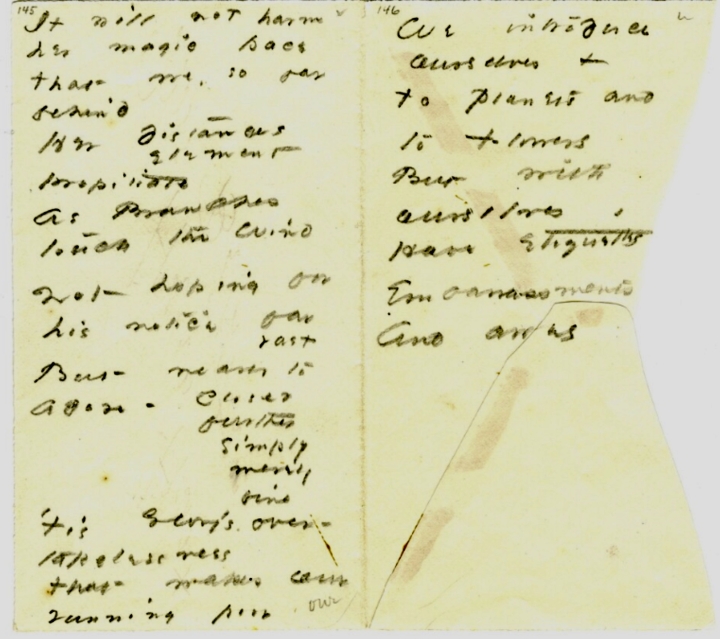 145
It will not harm
her magic pace
that we, so far
behind
Her Distances
element
propitiate
As Branches
touch the Wind
Not hoping for
his notice far
vast
But nearer to
adore - closer
further
simply
merely
'tis Glory's over-
takelessness
that makes our
running poor our
146
We introduce
ourselves +
to Planets and
to Flowers
But with
ourselves
Have etiquettes
Embarrassments
And awes